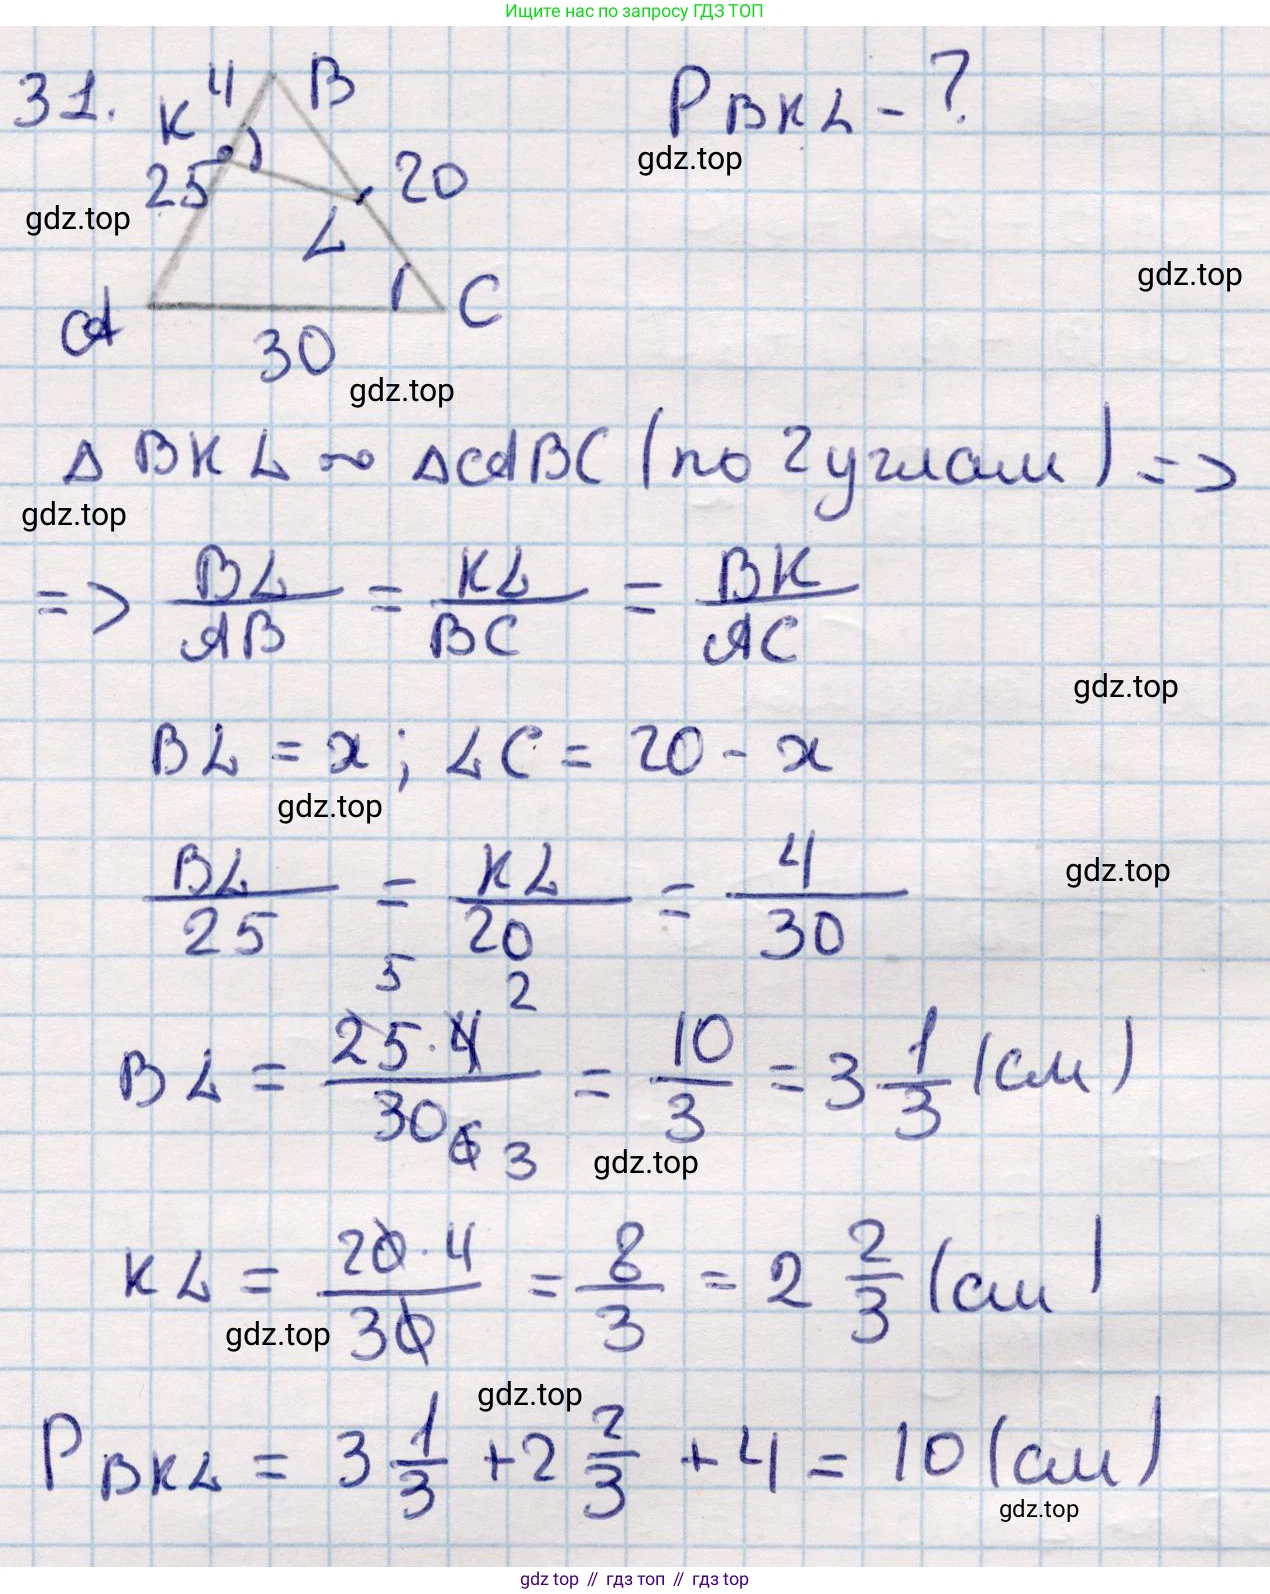 Ищите нас по запросу ГДЗ ТОП
31. K 4 B P BKL - ?
gdz.top
25 20
gdz.top
L
gdz.top
A C
30
gdz.top
Δ BKL ∾ ΔABC (по 2 углам) =>
gdz.top
=> BL/AB = KL/BC = BK/AC
gdz.top
BL = x; LC = 20 - x
gdz.top
BL/25 = KL/20 = 4/30
gdz.top
5 2
BL = 25·4/30 = 10/3 = 3 1/3 (см)
6 3
gdz.top
KL = 20·4/30 = 8/3 = 2 2/3 (см)
gdz.top
gdz.top
P BKL = 3 1/3 + 2 2/3 + 4 = 10 (см)
gdz.top
gdz top // гдз топ // гдз top